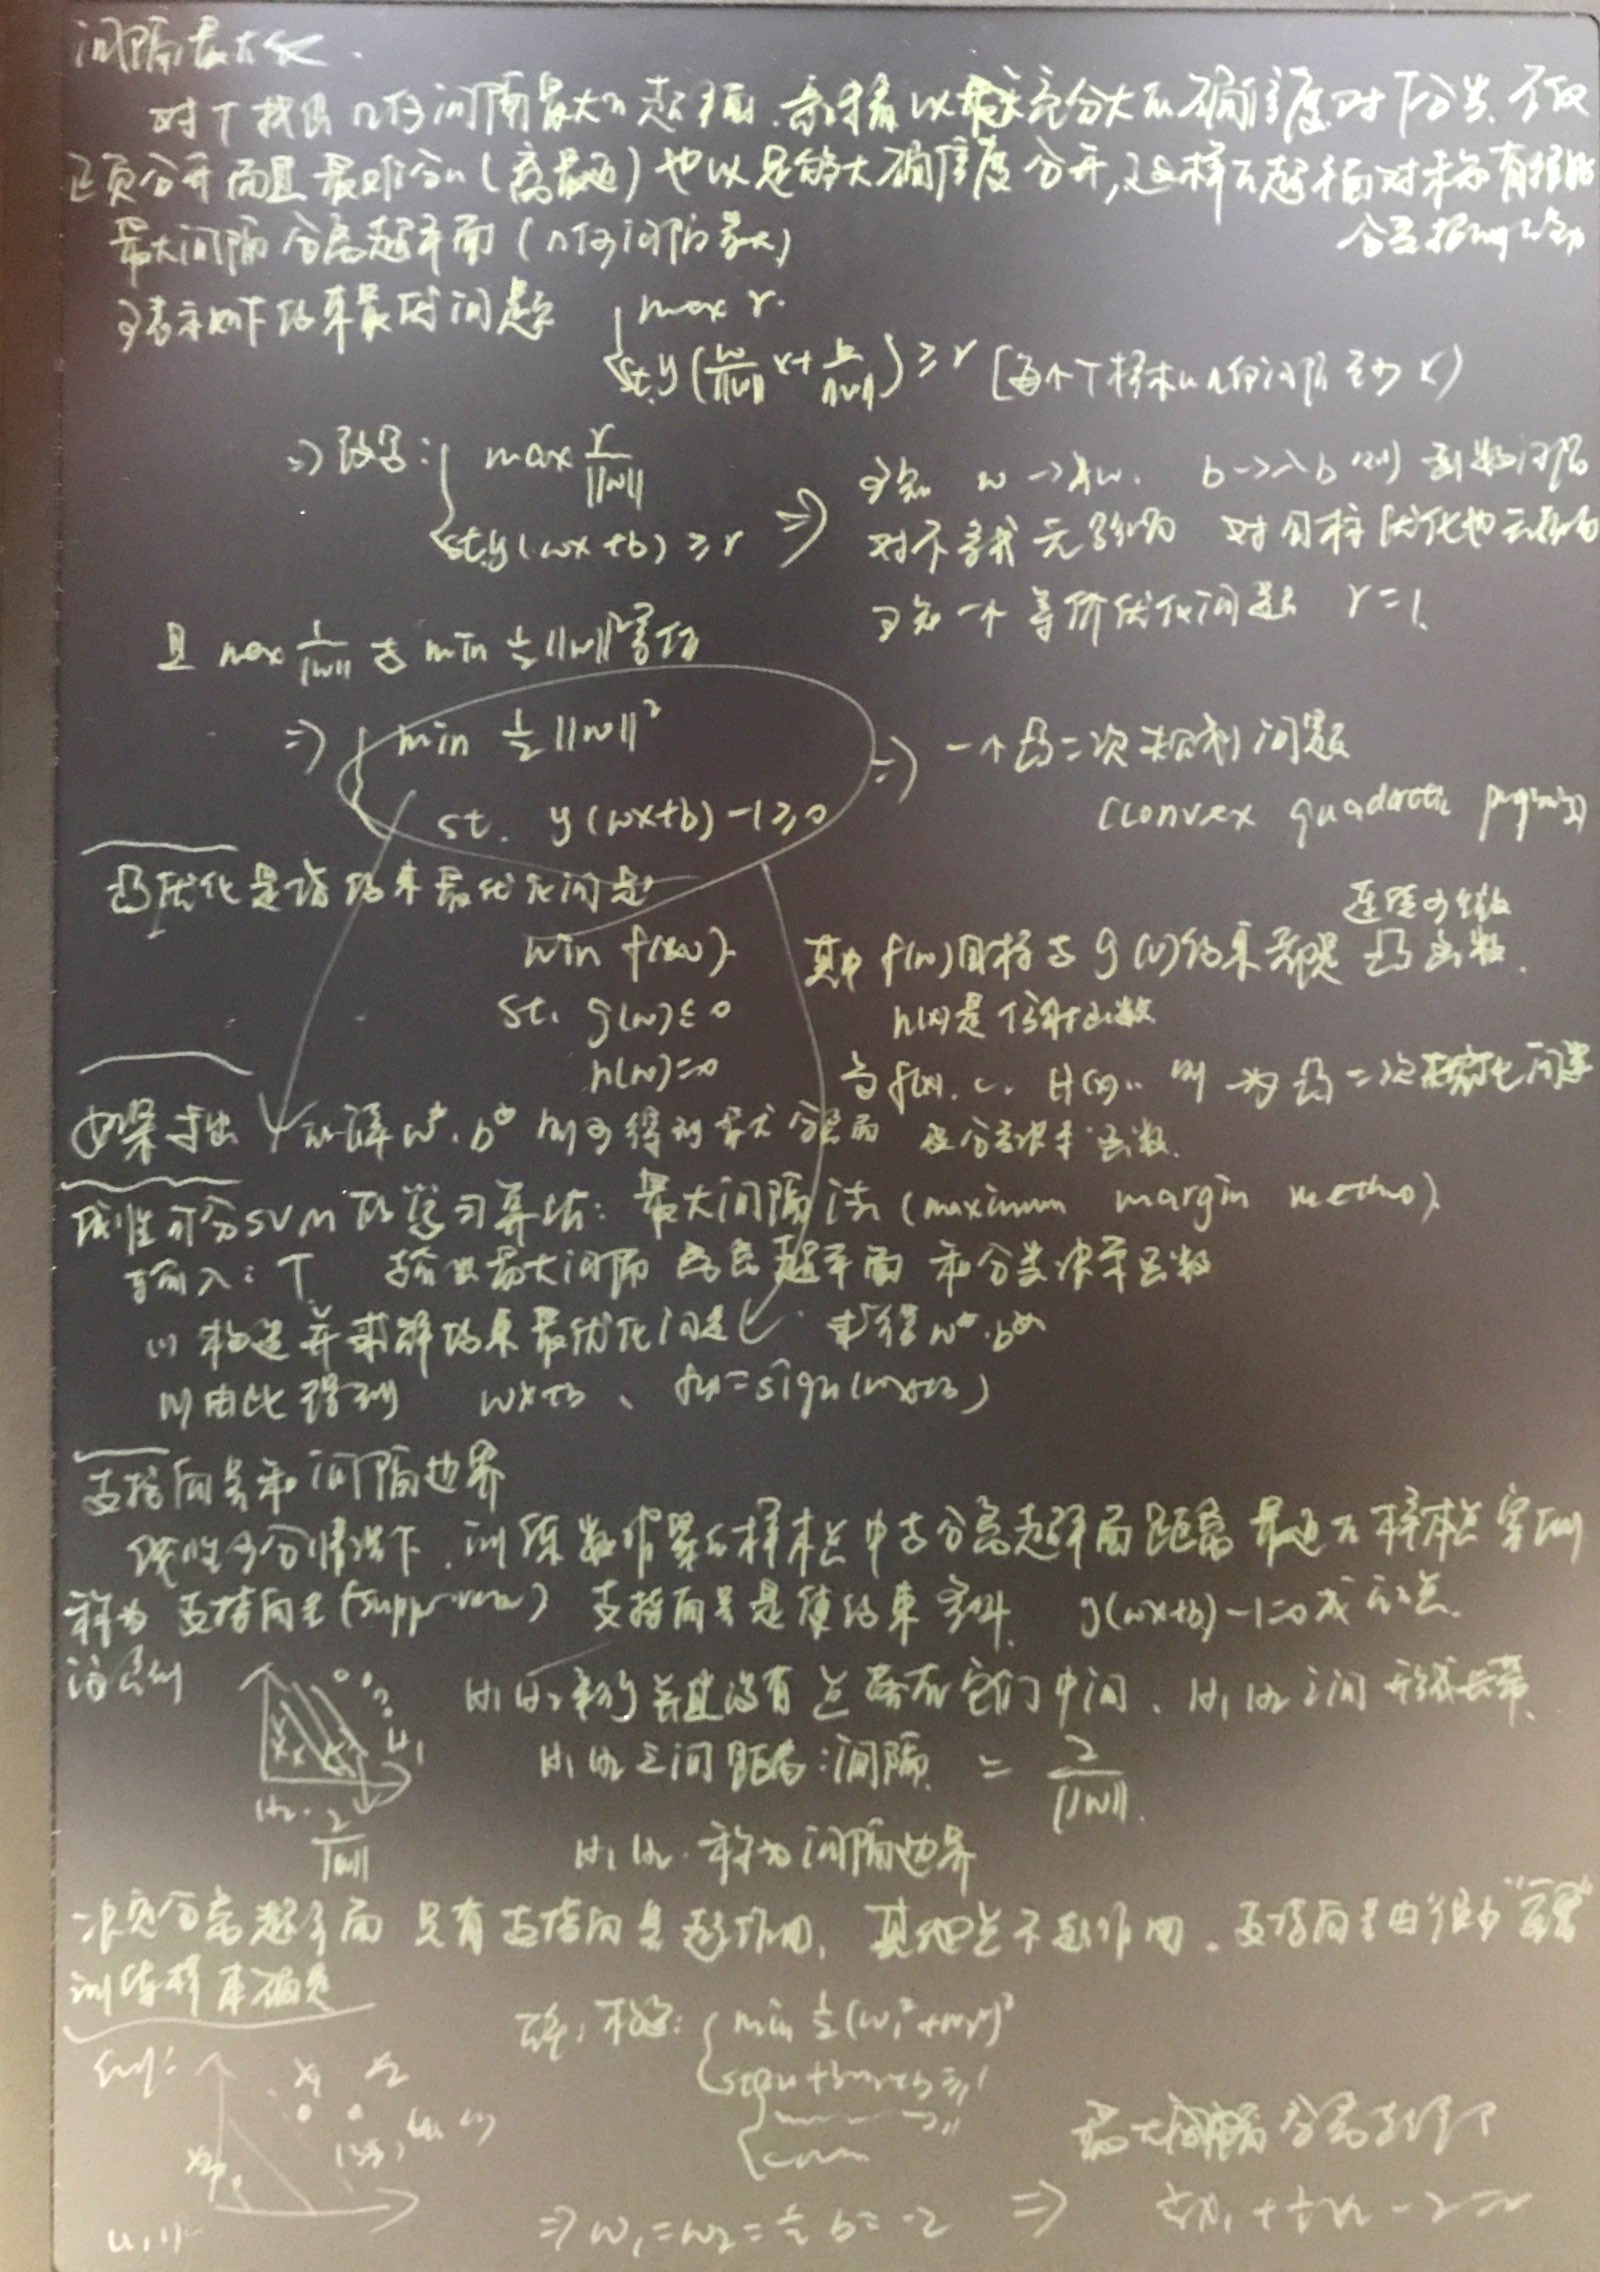 间隔最大化.
对T找出几何间隔最大的超平面.意味着以充分大的确信度对T分类.不仅
正负分开而且最难分的(离最近)也以足够大确信度分开,这样的超平面对未知有很好
分类预测能力
最大间隔分离超平面(几何间隔最大)
可表示如下约束最优问题 max r.
st. y(w/||w|| x+b/||w||)≥r (每个T样本的几何间隔至少r)
⇒改写: max r/||w||
st. y(wx+b)≥r ⇒
可知 w→λw. b→λb 则函数间隔
对不等式无影响 对目标优化也无影响
可知一个等价优化问题 r=1.
且 max 1/||w|| 与 min 1/2||w||²等价
⇒ min 1/2||w||² ⇒ 一个凸二次规划问题
st. y(wx+b)-1≥0 (convex quadratic
凸优化是指约束最优化问题
连续可微
min f(w). 其中f(w)目标与g(w)约束都是凸函数.
st. g(w)≤0 h(w)是仿射函数
h(w)=0 当f(w) 则为凸二次规划问题
如果求出 的解w*.b* 则可得到最大分离面 及分类决策函数.
线性可分SVM的学习算法:最大间隔法(maximum margin method).
输入:T 输出最大间隔分离超平面和分类决策函数
(1)构造并求解约束最优化问题 求得w*.b*
(2)由此得到 wx+b、f(x)=sign(wx+b)
支持向量和间隔边界
线性可分情况下.训练数据集的样本点中与分离超平面距离最近的样本点实例
称为支持向量(support vector) 支持向量是使约束条件 y(wx+b)-1=0成立的点.
H₁ H₂平行并且没有点落在它们中间.H₁ H₂之间形成长带.
H₁
H₁ H₂之间距离:间隔 = 2/||w||.
H₂. 2/||w||
H₁ H₂.称为间隔边界
决定分离超平面只有支持向量起作用,其他点不起作用.支持向量由很少"重要"
训练样本确定
例: 解:构造: min 1/2(w₁²+w₂²)²
最大间隔分离超平面
⇒w₁=w₂=1/2 b=-2 ⇒ 1/2x₁+1/2x₂-2=0